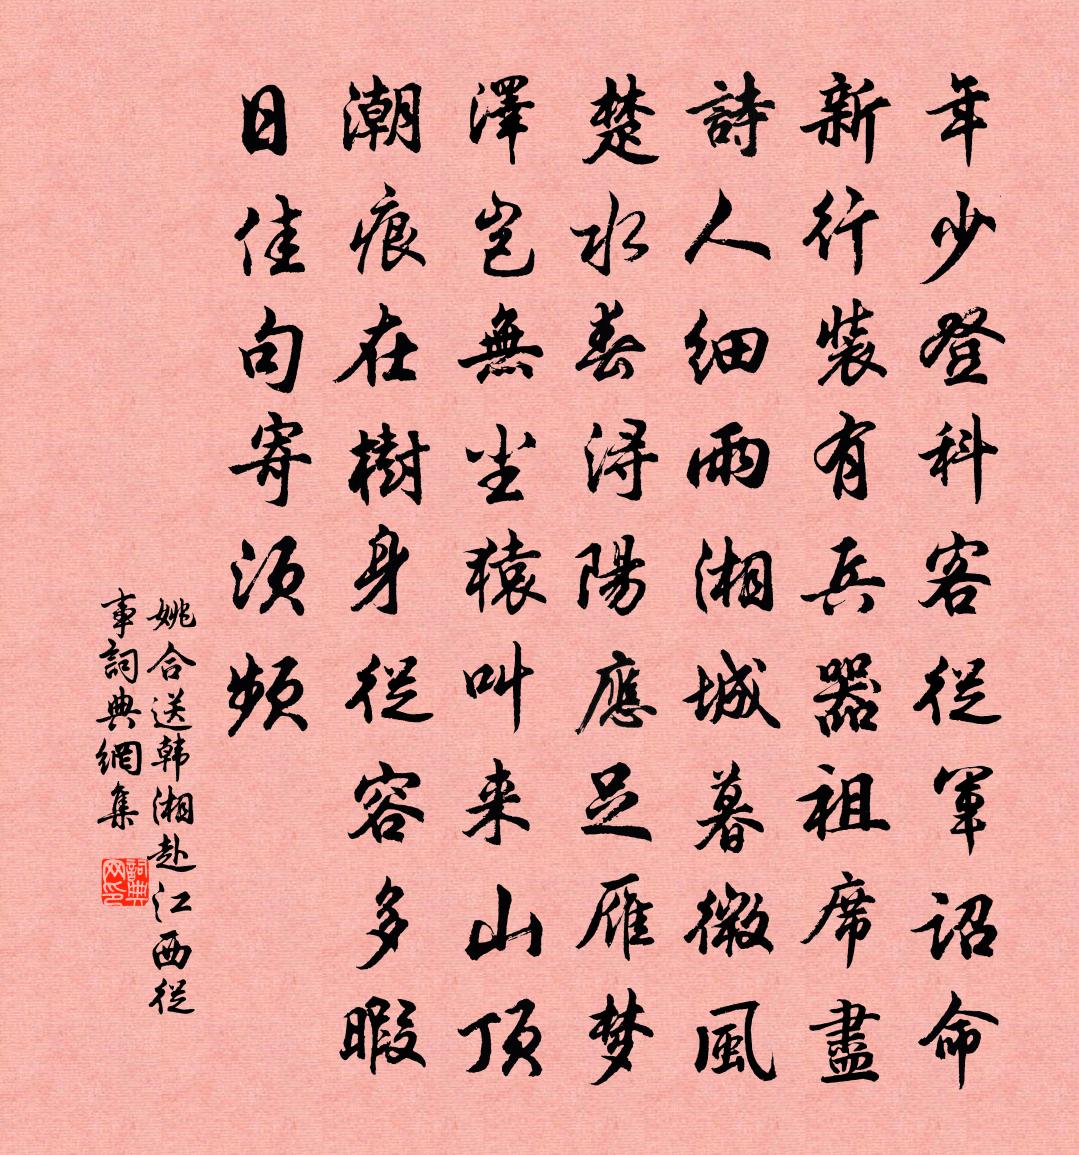 年少登科客從軍詔命
新行裝有兵器祖席盡
詩人細雨湘城暮微風
楚水春潯陽應足雁夢
澤豈無塵猿叫来山頂
潮痕在樹身從容多暇
日佳句寄須頻
姚合送韩湘赴江西從
事詞典網集
詞典网印